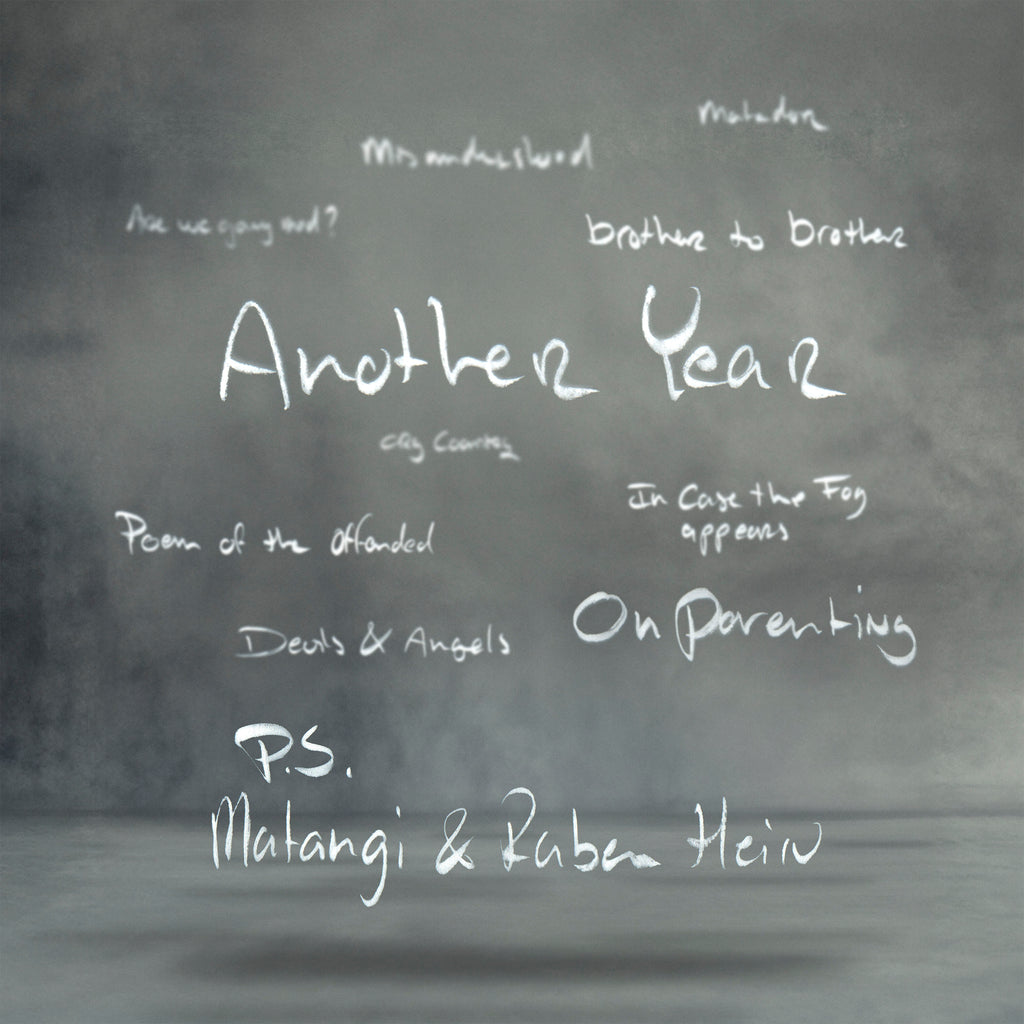 Matador
Misunderstood
Are we going mad?
brother to brother
Another Year
City Country
Poem of the Offended
In Case the Fog
appears
On Parenting
Devils & Angels
P.S.
Matangi & Ruben Hein